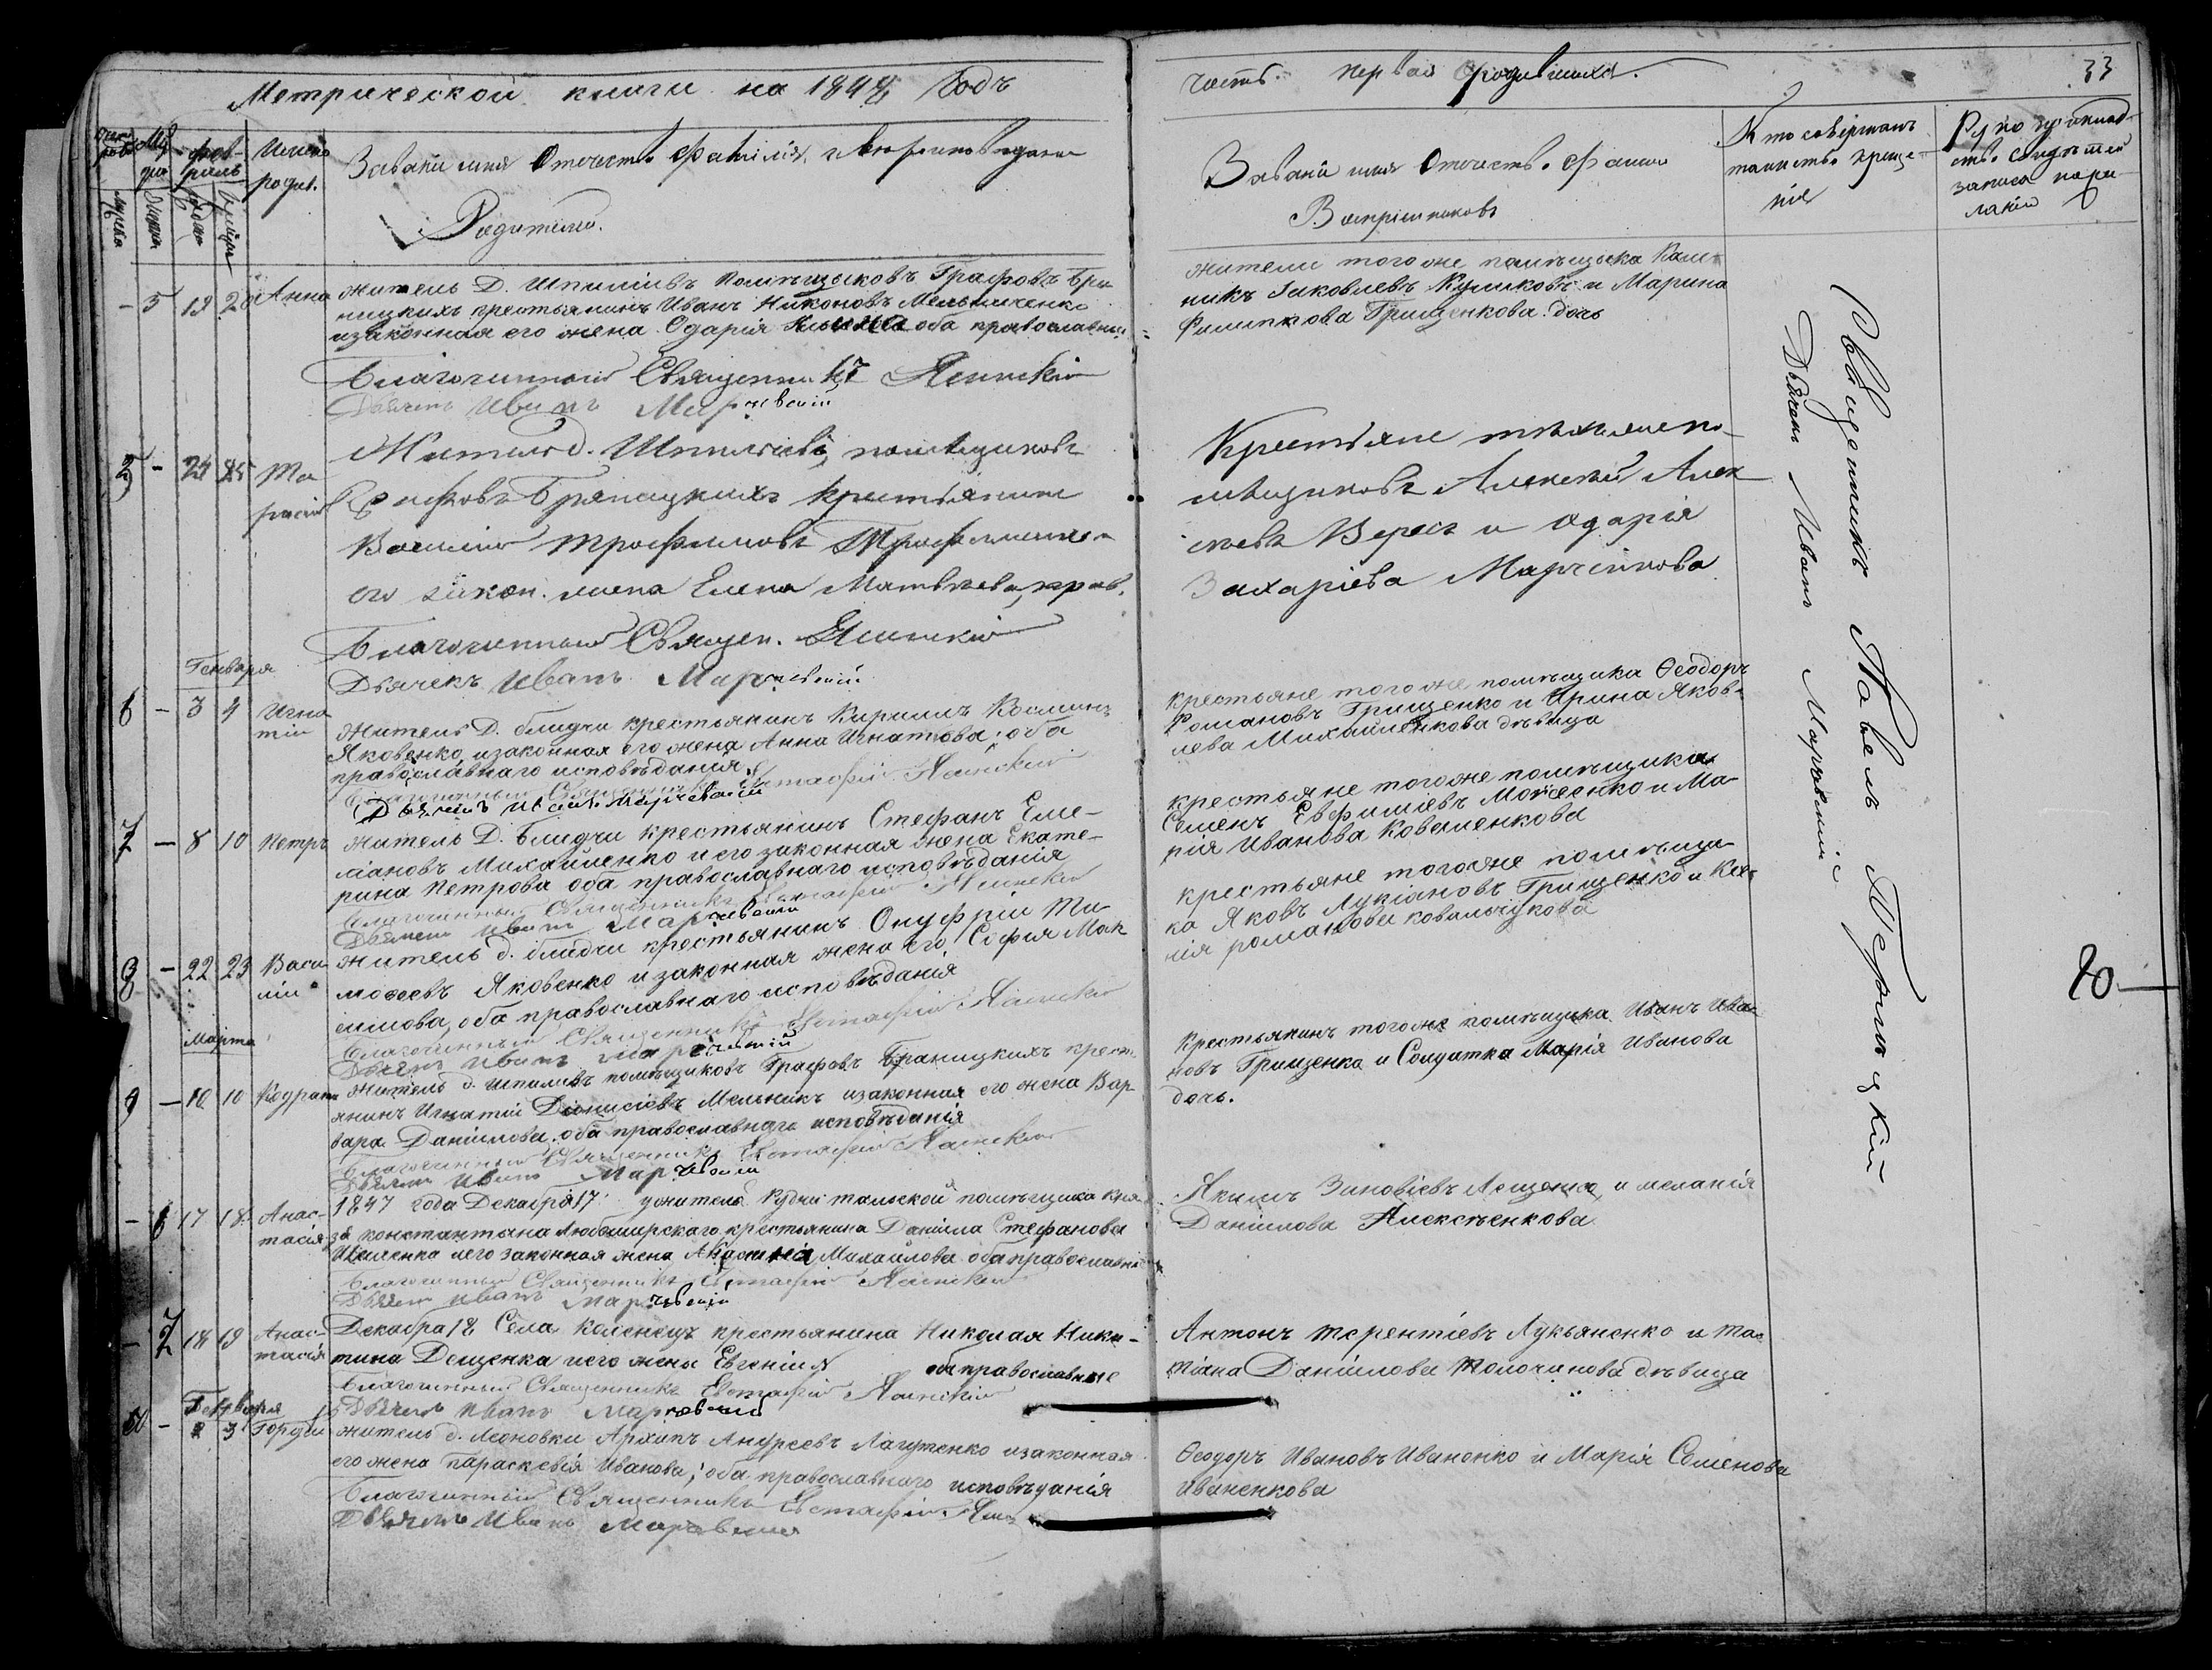 Метрической книги на 1848 Годъ
часть первая о родившихся.
33
Званіе имя Отечество Фамилія и вѣроисповѣданіе
Родителей.
Званіе имя Отечество Фамилія
Воспріемниковъ
Кто совершалъ
таинство креще-
нія
Рукоприклад-
ство свидѣтелей
записи по же-
ланію
- 5 19 20 Анна
житель Д. Шпилівъ помѣщиковъ Графовъ Бра-
ницкихъ крестьянинъ Иванъ Никоновъ Мельниченко
изаконная его жена Одарія оба православные
Благочинный Священникъ Ясинскій
Дьячекъ Иванъ Марчевскій
жители тогоже помѣщика
никъ Іаковлевъ Куликовъ и Марина
Филиппова Грищенкова дочь
5 - 24 25 Та-
расій
Житель д. Шпилівъ помѣщиковъ
Графовъ Браницкихъ крестьянинъ
Василій Трофимовъ
его закон. жена Елена Матвѣева, прав.
Благочинный Священ. Ясинскій
Дьячекъ Иванъ Марчевскій
Крестьяне тѣхжепо-
мѣщиковъ Алексѣй Алек-
сѣевъ Вересъ и Одарія
Захаріева Марченкова
Генваря
6 - 3 4 Игна
тій
Житель Д. блидчи крестьянинъ Кириллъ Косминъ
Яковенко изаконная его жена Анна Игнатова; оба
православнаго исповѣданія
Благочинный Священникъ Евстафій Ясинскій
Дьячекъ Иванъ Марчевскій
крестьяне тогоже помѣщика Ѳеодоръ
Романовъ Грищенко и Ирина Яков-
лева Михайленкова дѣвица
7 - 8 10 Петръ
житель Д. Блидчи крестьянинъ Стефанъ Еме-
ліановъ Михайленко и его законная жена Екате-
рина Петрова оба православнаго исповѣданія
Благочинный Священникъ Евстафій Ясинскій
Дьячекъ Иванъ Марчевскій
крестьяне тогоже помѣщика
Семенъ Евфиміевъ Моисеенко и Ма-
рія Иванова Коваленкова
8 - 22 23 Васи
лій
житель д. блидчи крестьянинъ Онуфрій Ти-
мофеевъ Яковенко и законная жена его София Мак
симова, оба православнаго исповѣданія
Благочинный Священникъ Евстафій Ясинскій
Дьячекъ Иванъ Марчевскій
крестьяне тогоже помѣщи-
ка Яковъ Лукіановъ Грищенко и Ксе-
нія романова ковальчукова
Марта
9 - 10 10 Кодратъ
Житель д. Шпилівъ помѣщиковъ Графовъ Браницкихъ крест-
янинъ Игнатій Діонисіевъ Мельникъ изаконная его жена Вар
вара Даніилова, оба православнаго исповѣданія
Благочинный Священникъ Евстафій Ясинскій
Дьячекъ Иванъ Марчевскій
Крестьянинъ тогоже помѣщика Иванъ Ива-
новъ Грищенко и Солдатка Марія Иванова
дочь.
- 6 17 18 Анас-
тасія
1847 года Декабря 17 ужителя Рудни тальской помѣщика кня-
зя константина Любомирскаго крестьянина Даніила Стефанова
его законная жена Михайлова оба православные
Благочинный Священникъ Евстафій Ясинскій
Дьячекъ Иванъ Марчевскій
Якимъ Зиновіевъ Лещенко, и меланія
Даніилова Алексѣенкова
- 7 18 19 Анас-
тасія
Декабра 18 Села Коленецъ крестьянина Николая Ники-
тина Дещенка иего жены Евгеніи оба православные
Благочинный Священникъ Евстафій Ясинскій
Дьячекъ Иванъ Марчевскій
Антонъ терентіевъ Лукьяненко и Тат
тіана Даніилова Толочинова дѣвица
Генваря
10 - 2 3 Гордій
житель д. Леоновки Архипъ Андреевъ Лагутенко изаконная
его жена Параскевія Иванова; оба православнаго исповѣданія
Благочинный Священникъ Евстафій
Дьячекъ Иванъ Марчевскій
Ѳеодоръ Ивановъ Иваненко и Марія Семенова
Иваненкова
Священникъ Павелъ
Дьячекъ Иванъ Марчевскій